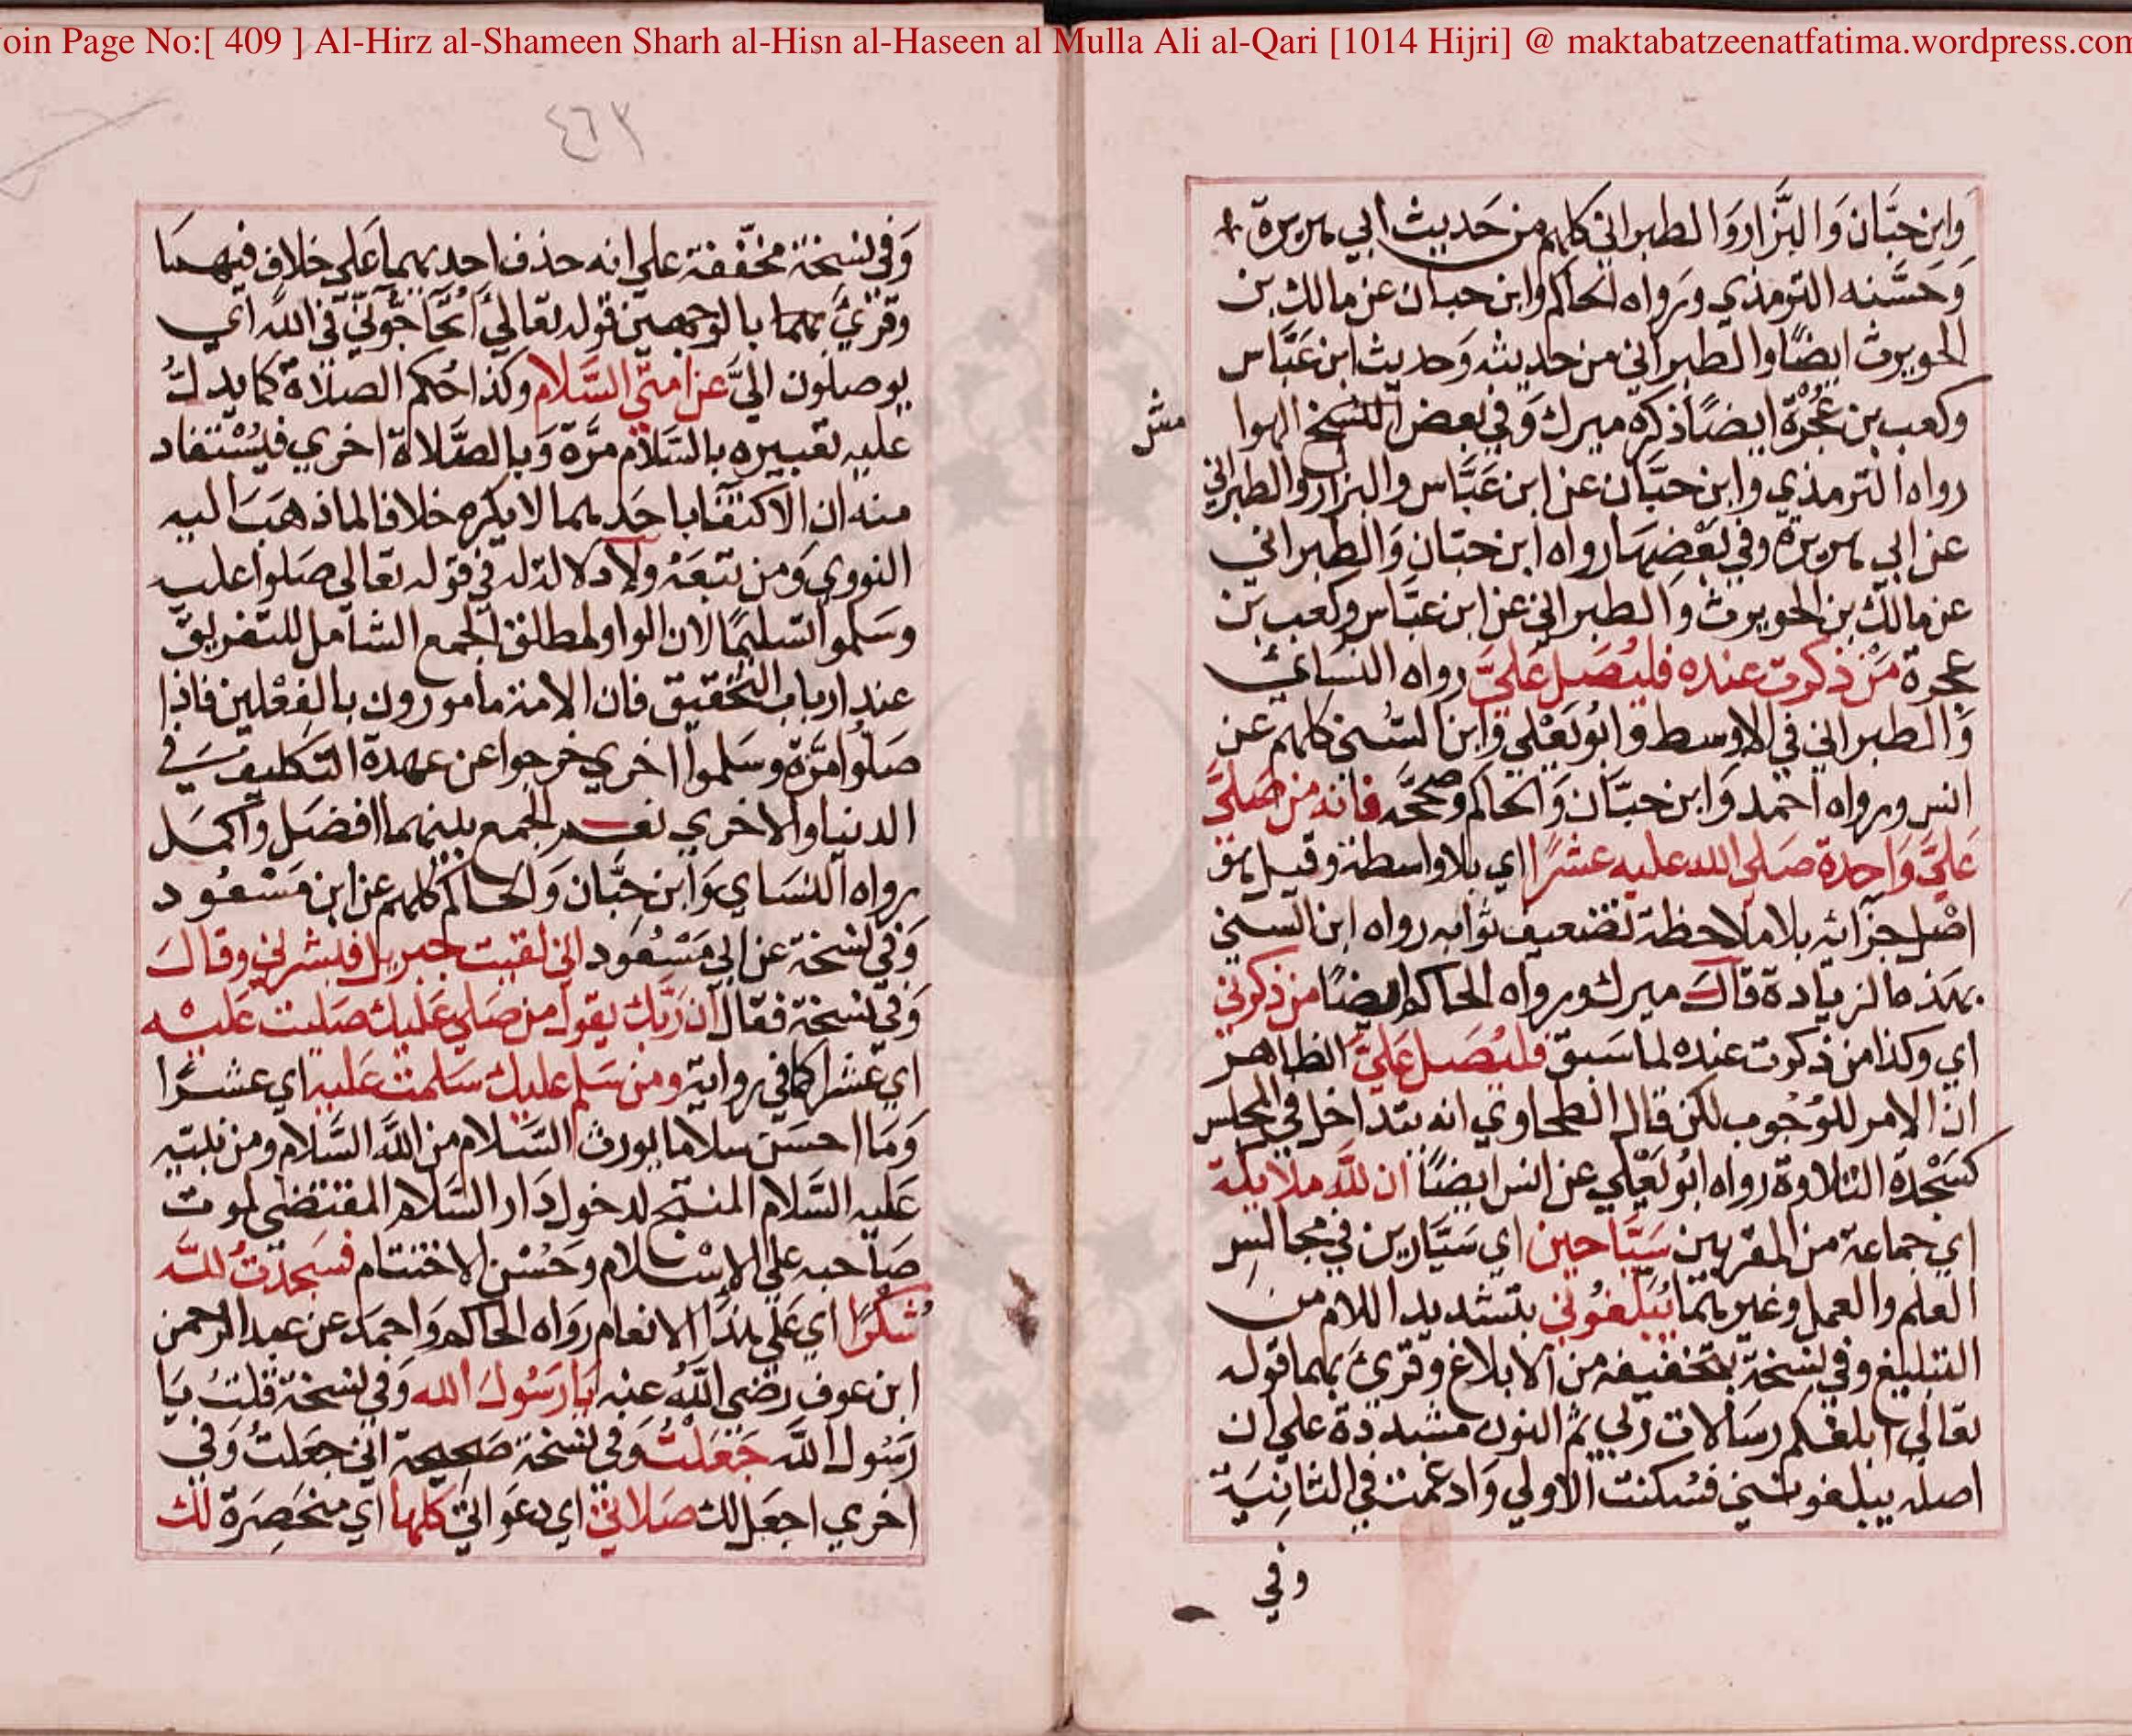 oin Page No:[ 409 ] Al-Hirz al-Shameen Sharh al-Hisn al-Haseen al Mulla Ali al-Qari [1014 Hijri] @ maktabatzeenatfatima.wordpress.com
وابن حبان والبزار والطبراني كلهم من حديث ابي هريرة
وحسنه الترمذي ورواه الحاكم وابن حبان عن مالك بن
الحويرث ايضا والطبراني من حديثه وحديث ابن عباس
وكعب بن عجرة ايضا ذكره ميرك وفي بعض النسخ الهوا
مش
رواه الترمذي وابن حبان عن ابن عباس والبزار والطبراني
عن ابي هريرة وفي بعضها رواه ابن حبان والطبراني
عن مالك بن الحويرث والطبراني عن ابن عباس وكعب بن
عجرة من ذكرت عنده فليصل علي رواه النسائي
والطبراني في الاوسط وابو يعلي وابن السني كلهم عن
انس ورواه احمد وابن حبان والحاكم وصححه فانه من صلي
علي واحدة صلي الله عليه عشرا اي بلا واسطة وقيل هو
اصل جزائه بلا ملاحظة تضعيف ثوابه رواه ابن السني
بهذه الزيادة قال ميرك ورواه الحاكم ايضا من ذكرني
اي وكذا من ذكرت عنده لما سبق فليصل علي الظاهر
ان الامر للوجوب لكن قال الطحاوي انه يتداخل في المجلس
كسجدة التلاوة رواه ابو يعلي عن انس ايضا ان لله ملايكة
اي جماعة من المقربين سياحين اي سيارين في مجالس
العلم والعمل وغيرهما يبلغوني بتشديد اللام من
التبليغ وفي نسخة بتخفيفه من الابلاغ وقرئ بهما قوله
تعالي ابلغكم رسالات ربي ثم النون مشددة علي ان
اصله يبلغونني فسكنت الاولي وادغمت في الثانية
وفي
٤٦٢
وفي نسخة مخففة علي انه حذف احديهما علي خلاف فيهما
وقرئ بهما بالوجهين قوله تعالي اتحاجوني في الله اي
يوصلون الي عن امتي السلام وكذا حكم الصلاة كما يدل
عليه تعبيره بالسلام مرة وبالصلاة اخري فيستفاد
منه ان الاكتفا باحدهما لا يكره خلافا لما ذهب اليه
النووي ومن تبعه ولا دلالة له في قوله تعالي صلوا عليه
وسلموا تسليما لان الواو لمطلق الجمع الشامل للتفريق
عند ارباب التحقيق فان الامة مامورون بالفعلين فاذا
صلوا مرة وسلموا اخري خرجوا عن عهدة التكليف في
الدنيا والاخري نعم الجمع بينهما افضل واكمل
رواه النساي وابن حبان والحاكم كلهم عن ابن مسعود
وفي نسخة عن ابي مسعود اني لقيت جبريل فبشرني وقال
وفي نسخة فقال ان ربك يقول من صلي عليك صليت عليه
اي عشرا كما في رواية ومن سلم عليك سلمت عليه اي عشرا
وما احسن سلاما يورث السلام من الله السلام ومن نبيه
عليه السلام المنتج لدخول دار السلام المقتضي لموت
صاحبه علي الاسلام وحسن الاختتام فسجدت لله
شكرا اي علي هذا الانعام رواه الحاكم واحمد عن عبد الرحمن
ابن عوف رضي الله عنه يا رسول الله وفي نسخة قلت يا
رسول الله جعلت وفي نسخة صحيحة اني جعلت وفي
اخري اجعل لك صلاتي اي دعواتي كلها اي منحصرة لك